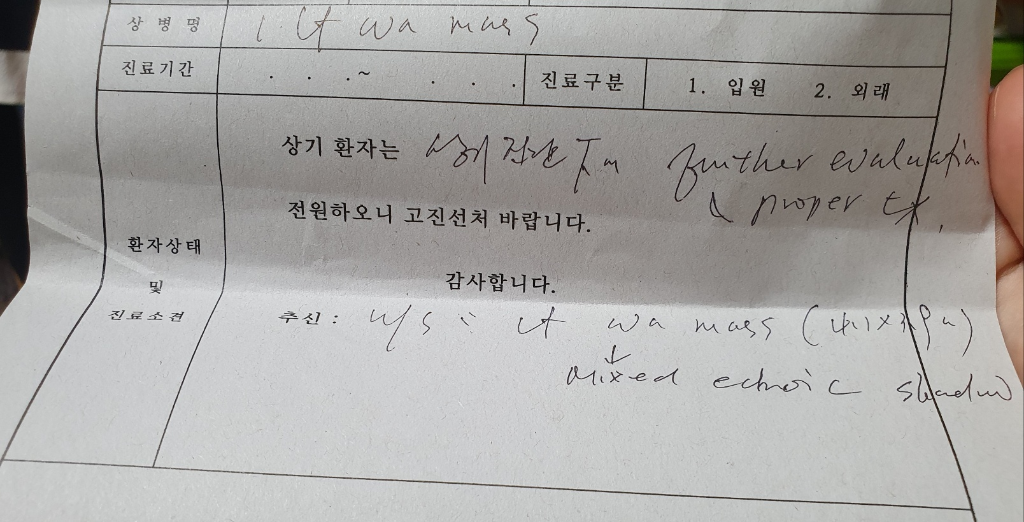 상 병 명 Lt wa mass
진료기간 . . . ~ . . . 진료구분 1. 입원 2. 외래
상기 환자는 상기 진단 further evaluation
& proper tx.
전원하오니 고진선처 바랍니다.
환자상태
및
진료소견
감사합니다.
추신 : u/s : Lt wa mass
↓
mixed echoic shadow